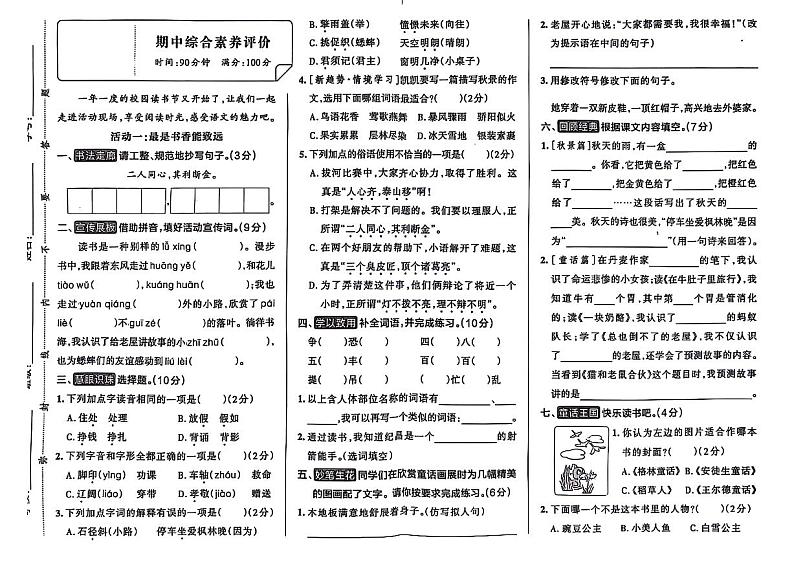 期中综合素养评价
时间:90分钟 满分:100分
一年一度的校园读书节又开始了,让我们一起
走进活动现场,享受阅读时光,感受语文的魅力吧。
活动一:最是书香能致远
一、书法走廊 请工整、规范地抄写句子。(3分)
二人同心,其利断金。
二、宣传展板 借助拼音,填好活动宣传词。(9分)
读书是一种别样的lǚ xíng( )。漫步
书中,我跟着东风走过huāng yě( ),和花儿
tiào wǔ( ),kuáng huān( );我也
走过yuàn qiáng( )外的小路,欣赏了pái
liè( )不guī zé( )的落叶。徜徉书
海,我认识了给老屋讲故事的小zhī zhū( ),
也为蟋蟀们的友谊感动到liú lèi( )。
三、慧眼识珠 选择题。(10分)
1.下列加点字读音相同的一项是( )(2分)
A.住处 处理 B.放假 假如
C.挣钱 挣扎 D.背诵 背影
2.下列字音和字形全都正确的一项是( )(2分)
A.脚印(yìng) 功课 B.车轴(zhóu) 救命
C.辽阔(liáo) 穿带 D.孝敬(jìào) 赠送
3.下列加点字词的解释有误的一项是( )(2分)
A.石径斜(小路) 停车坐爱枫林晚(因为)
B.擎雨盖(举) 憧憬未来(向往)
C.挑促织(蟋蟀) 天空明朗(晴朗)
D.君须记(君主) 窗明几净(小桌子)
4.[新趋势·情境学习]凯凯要写一篇描写秋景的作
文,选用下面哪组词语最适合?( )(2分)
A.鸟语花香 莺歌燕舞 B.暴风骤雨 骄阳似火
C.果实累累 层林尽染 D.冰天雪地 银装素裹
5.下列加点的俗语使用不恰当的一项是( )(2分)
A.拔河比赛中,大家齐心协力,取得了胜利。这
真是“人心齐,泰山移”啊!
B.打架是解决不了问题的。我们要以理服人,正
所谓“二人同心,其利断金”。
C.在两个好朋友的帮助下,小语解开了难题,这
真是“三个臭皮匠,顶个诸葛亮”。
D.为了弄清楚这件事,他们俩辩论了将近一个
小时,正所谓“灯不拨不亮,理不辩不明”。
四、学以致用 补全词语,并完成练习。(10分)
争( )恐( ) 四( )八( )
五( )丰( ) 百( )百( )
提( )吊( ) ( )忙( )乱
1.以上含人体部位名称的词语有________、
________,我可以再写一个类似的词语:________。
2.通过读书,我知道纪昌是一个________的射
箭能手。(选词填空)
五、妙笔生花 同学们在欣赏童话画展时为几幅精美
的图画配了文字。请你按要求完成练习。(6分)
1.木地板满意地舒展着身子。(仿写拟人句)
2.老屋开心地说:“大家都需要我,我很幸福!”(改
为提示语在中间的句子)
3.用修改符号修改下面的句子。
她穿着一双新皮鞋,一顶红帽子,高兴地去外婆家。
六、回顾经典 根据课文内容填空。(7分)
1.[秋景篇]秋天的雨,有一盒________的
________。你看,它把黄色给了________,把红色
给了________,把金黄色给了________,把橙红色
给了________……这段话写出了秋天的________
________美。秋天的诗也很美,“停车坐爱枫林晚”是因
为“________”(用一句诗来回答)。
2.[童话篇]在丹麦作家________的笔下,我认
识了命运悲惨的小女孩;读《在牛肚子里旅行》,我
知道牛有____个胃,其中第____个胃是管消化
的;读《一块奶酪》,我认识了________的蚂蚁
队长;学了《总也倒不了的老屋》,我不仅认识
了________的老屋,还学会了预测故事的内容。
当看到《猫和老鼠合伙》这个题目时,我预测故事
讲的是________________
七、童话王国 快乐读书吧。(4分)
1.你认为左边的图片适合作哪本
书的封面?( )(2分)
A.《格林童话》 B.《安徒生童话》
C.《稻草人》 D.《王尔德童话》
2.下面哪一个不是这本书里的人物?( )(2分)
A.豌豆公主 B.小美人鱼 C.白雪公主